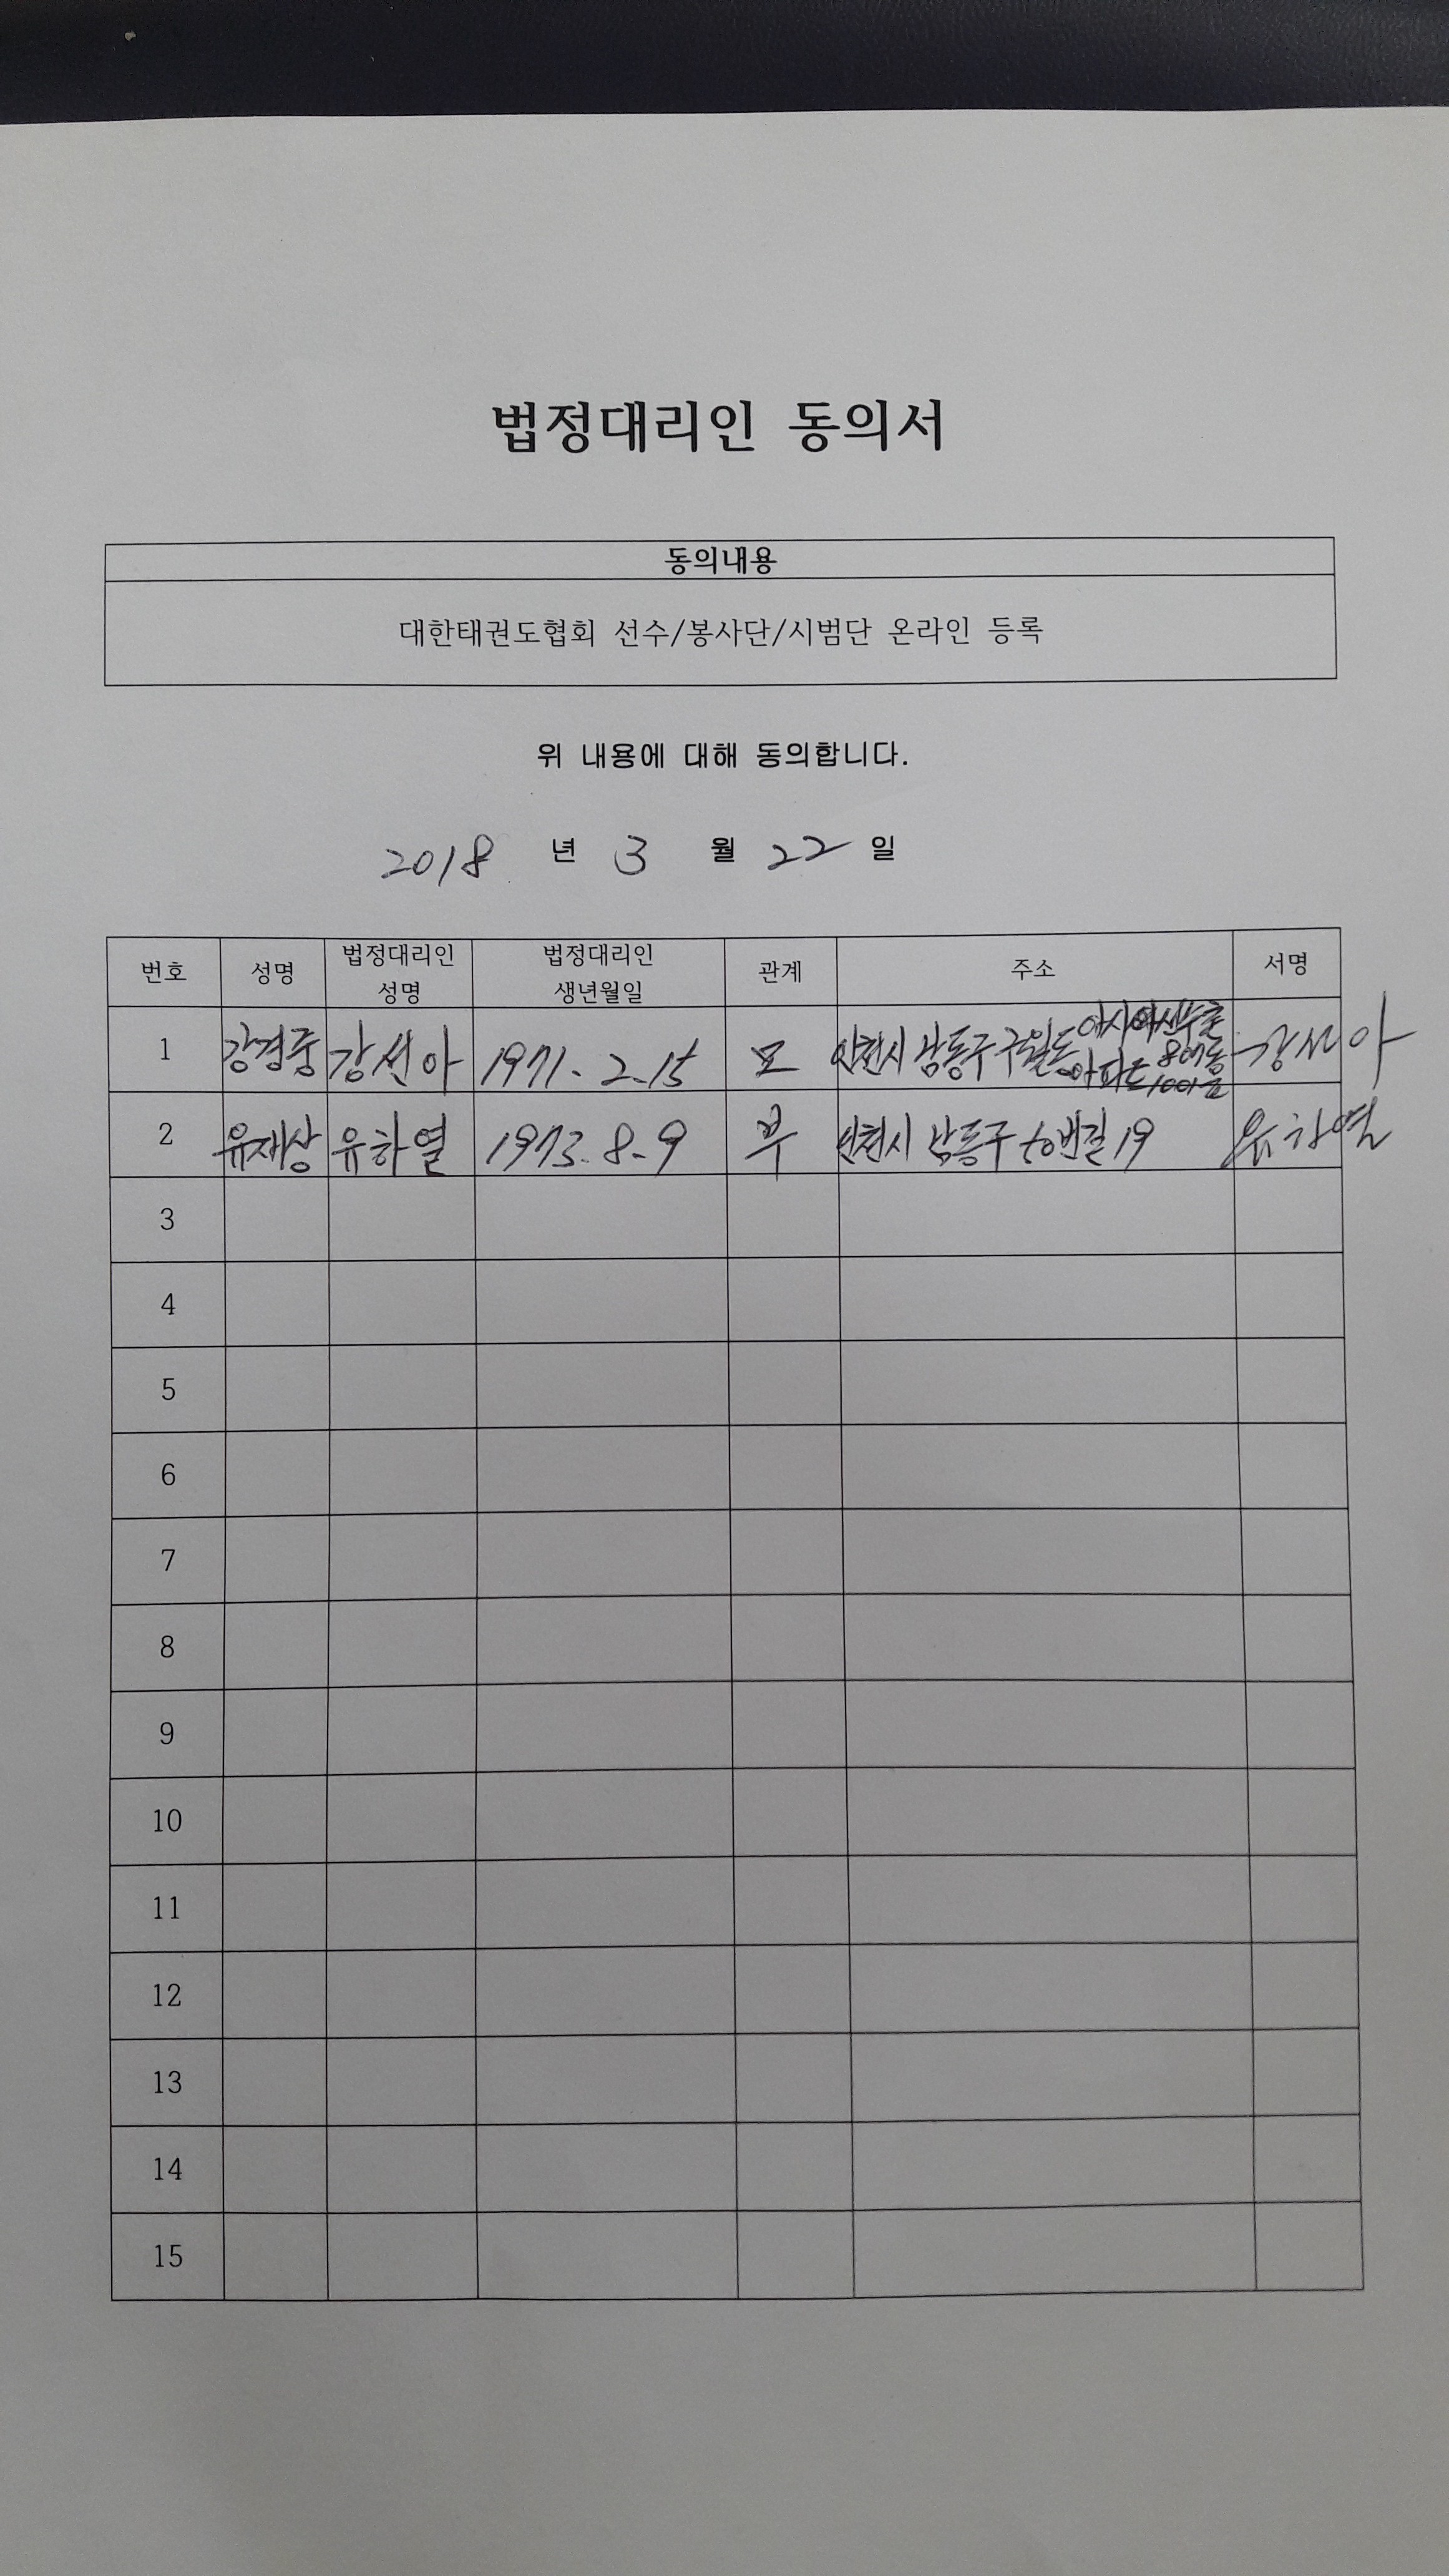 법정대리인 동의서
동의내용
대한태권도협회 선수/봉사단/시범단 온라인 등록
위 내용에 대해 동의합니다.
2018 년 3 월 22 일
번호 성명 법정대리인 성명 법정대리인 생년월일 관계 주소 서명
1 강경중 강선아 1971. 2. 15 모 인천시 남동구 구월동 아시아선수촌 아파트 강선아
2 유재상 유하열 1973. 8. 9 부 인천시 남동구 19 유하열
3
4
5
6
7
8
9
10
11
12
13
14
15